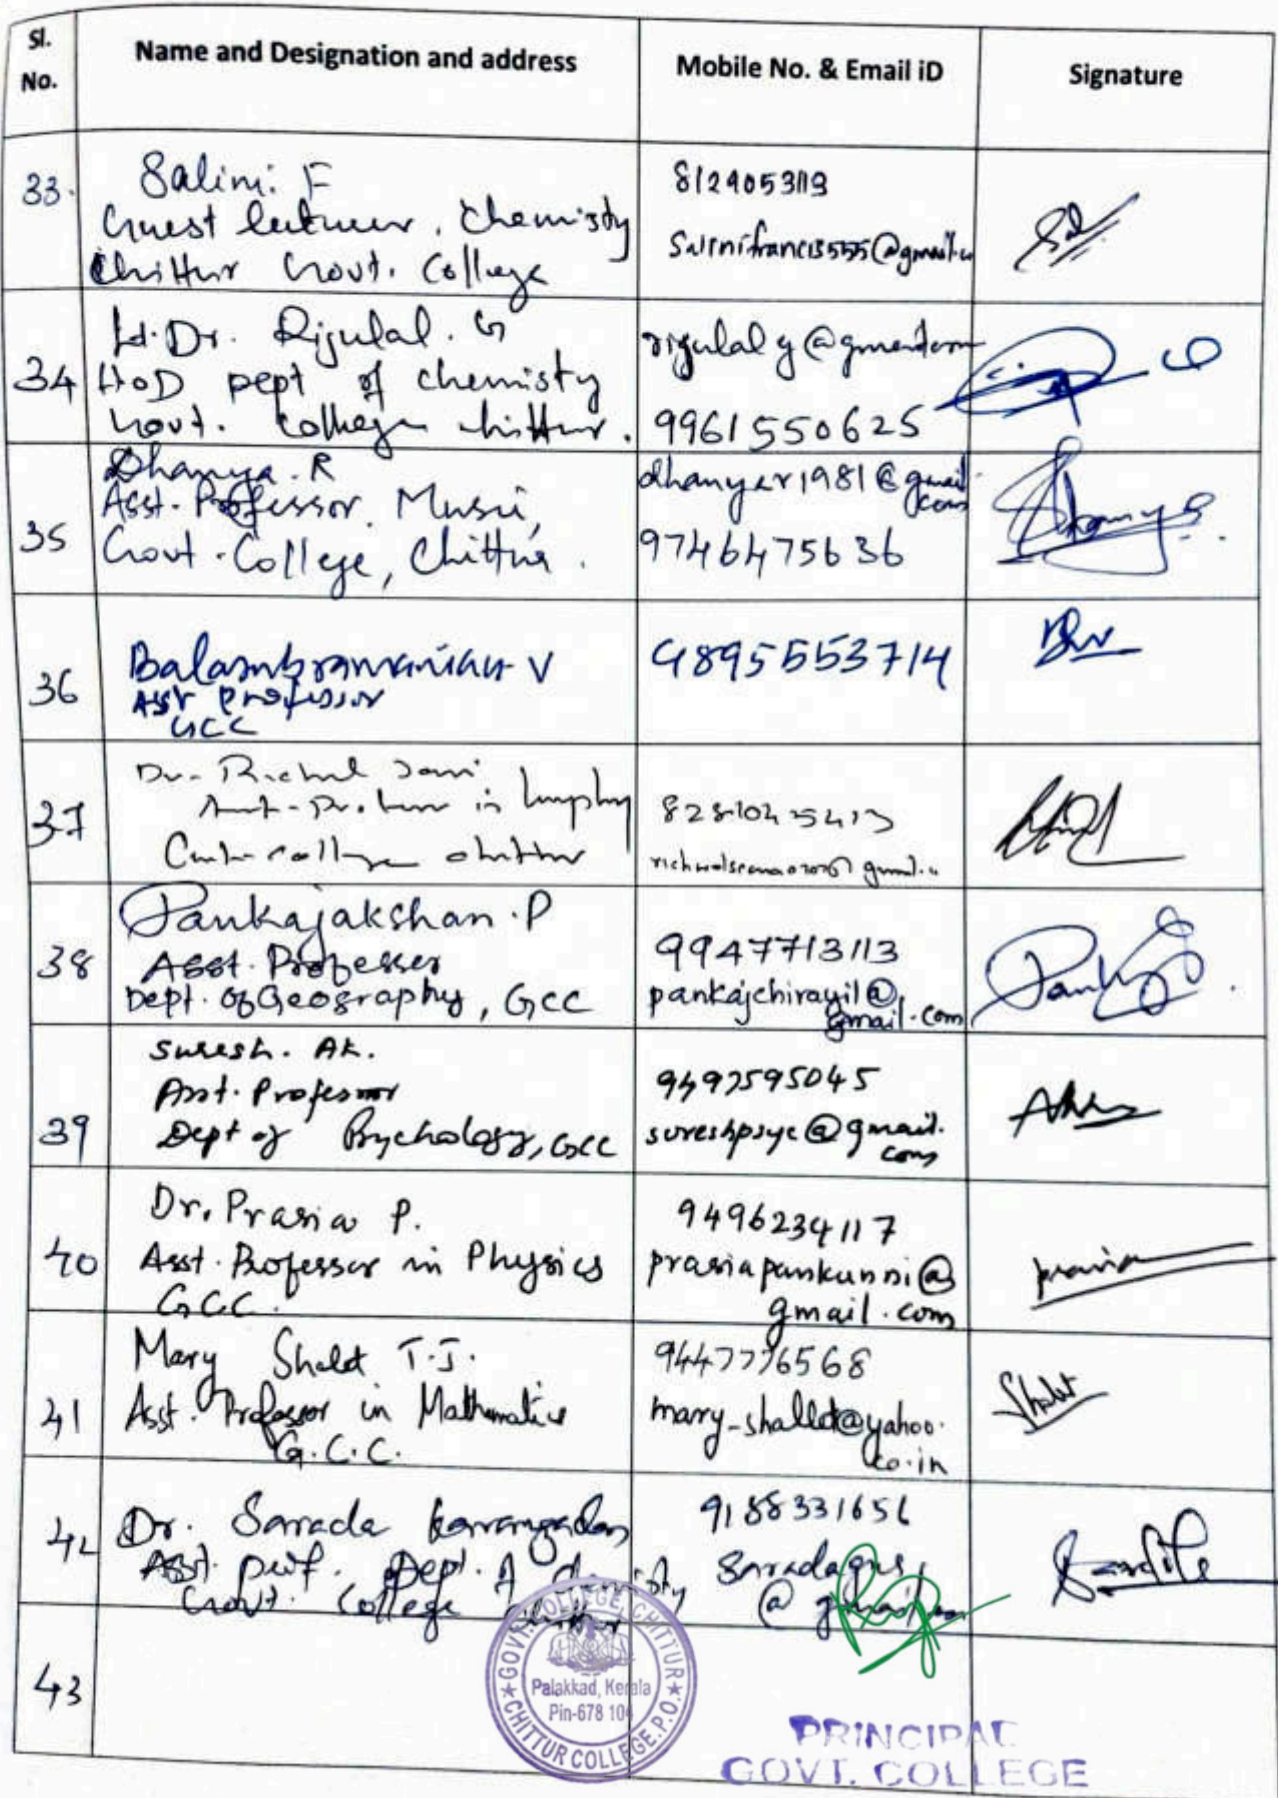 Sl. No.
Name and Designation and address
Mobile No. & Email iD
Signature
33.
Salini. F
Guest lecturer, Chemisty
Chittur Govt. College
8129053113
Salinifrancis555@gmail.c
34
Lt. Dr. Rijulal. G
HoD Dept of chemisty
Govt. College chittur.
rijulalg@gmail.com
9961550625
35
Dhanya. R
Asst. Professor. Music,
Govt. College, Chittur.
dhanyar1981@gmail.
com
9746475636
Dhanya R.
36
Balasubramanian V
Asst Professor
GCC
9895553714
37
Dr.
Asst. in
college chittur
38
Pankajakshan. P
Asst. Professer
Dept. of Geography, GCC
9947713113
pankajchirayil@
gmail.com
Pankaj
39
Suresh. AK.
Asst. Professor
Dept of Psychology, GCC
9497595045
sureshpsyc@gmail.
com
40
Dr. Prasia P.
Asst. Professor in Physics
GCC.
9496234117
prasiapankunni@
gmail.com
prasia
41
Mary Shalet T.J.
Asst. Professor in Mathematics
G.C.C.
9447776568
mary_shallet@yahoo.
co.in
Shalet
42
Dr. Sarada
Asst. Prof. Dept. of chemistry
Govt. College chittur
9188331656
saradagus
@gmail.com
43
GOVT. COLLEGE, CHITTUR
Palakkad, Kerala
Pin-678 104
CHITTUR COLLEGE.P.O.
PRINCIPAL
GOVT. COLLEGE